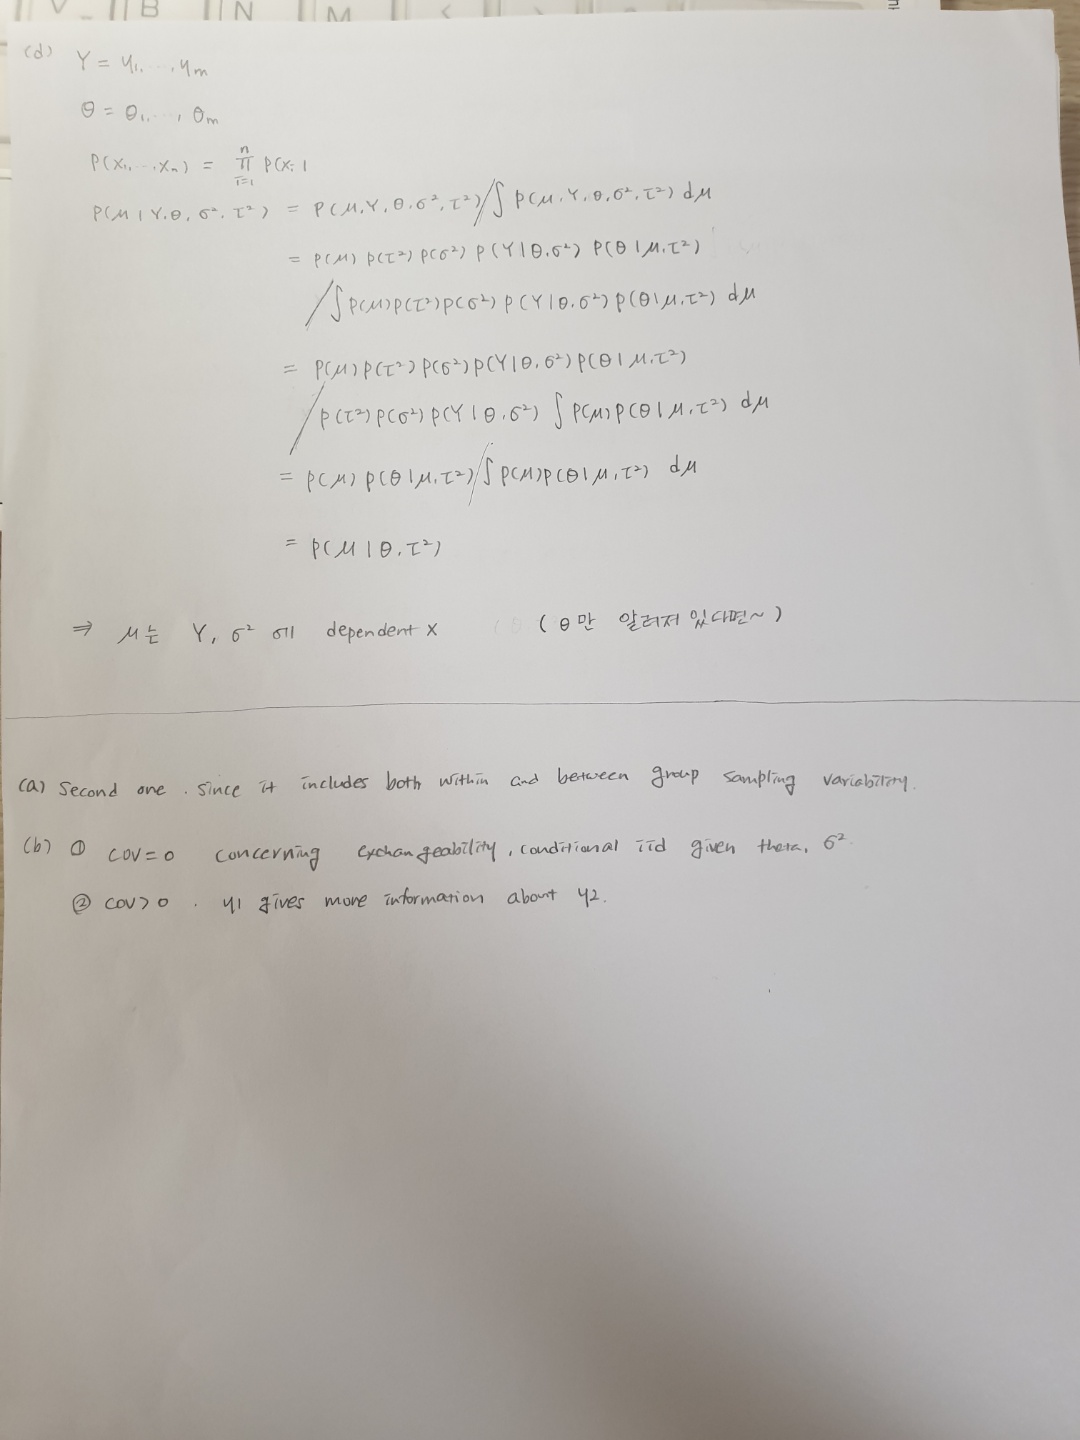 V B N M < >
(d) Y = y₁, ..., yₘ
θ = θ₁, ..., θₘ
P(x₁, ..., xₙ) = ∏ᵢ₌₁ⁿ P(xᵢ |
P(μ | Y, θ, σ², τ²) = P(μ, Y, θ, σ², τ²) / ∫ P(μ, Y, θ, σ², τ²) dμ
= P(μ) P(τ²) P(σ²) P(Y | θ, σ²) P(θ | μ, τ²)
/ ∫ P(μ) P(τ²) P(σ²) P(Y | θ, σ²) P(θ | μ, τ²) dμ
= P(μ) P(τ²) P(σ²) P(Y | θ, σ²) P(θ | μ, τ²)
/ P(τ²) P(σ²) P(Y | θ, σ²) ∫ P(μ) P(θ | μ, τ²) dμ
= P(μ) P(θ | μ, τ²) / ∫ P(μ) P(θ | μ, τ²) dμ
= P(μ | θ, τ²)
⇒ μ는 Y, σ² 에 dependent X (θ만 알려져 있다면~)
(a) Second one. since it includes both within and between group sampling variability.
(b) ① COV=0 concerning exchangeability, conditional iid given theta, σ².
② COV>0. y1 gives more information about y2.